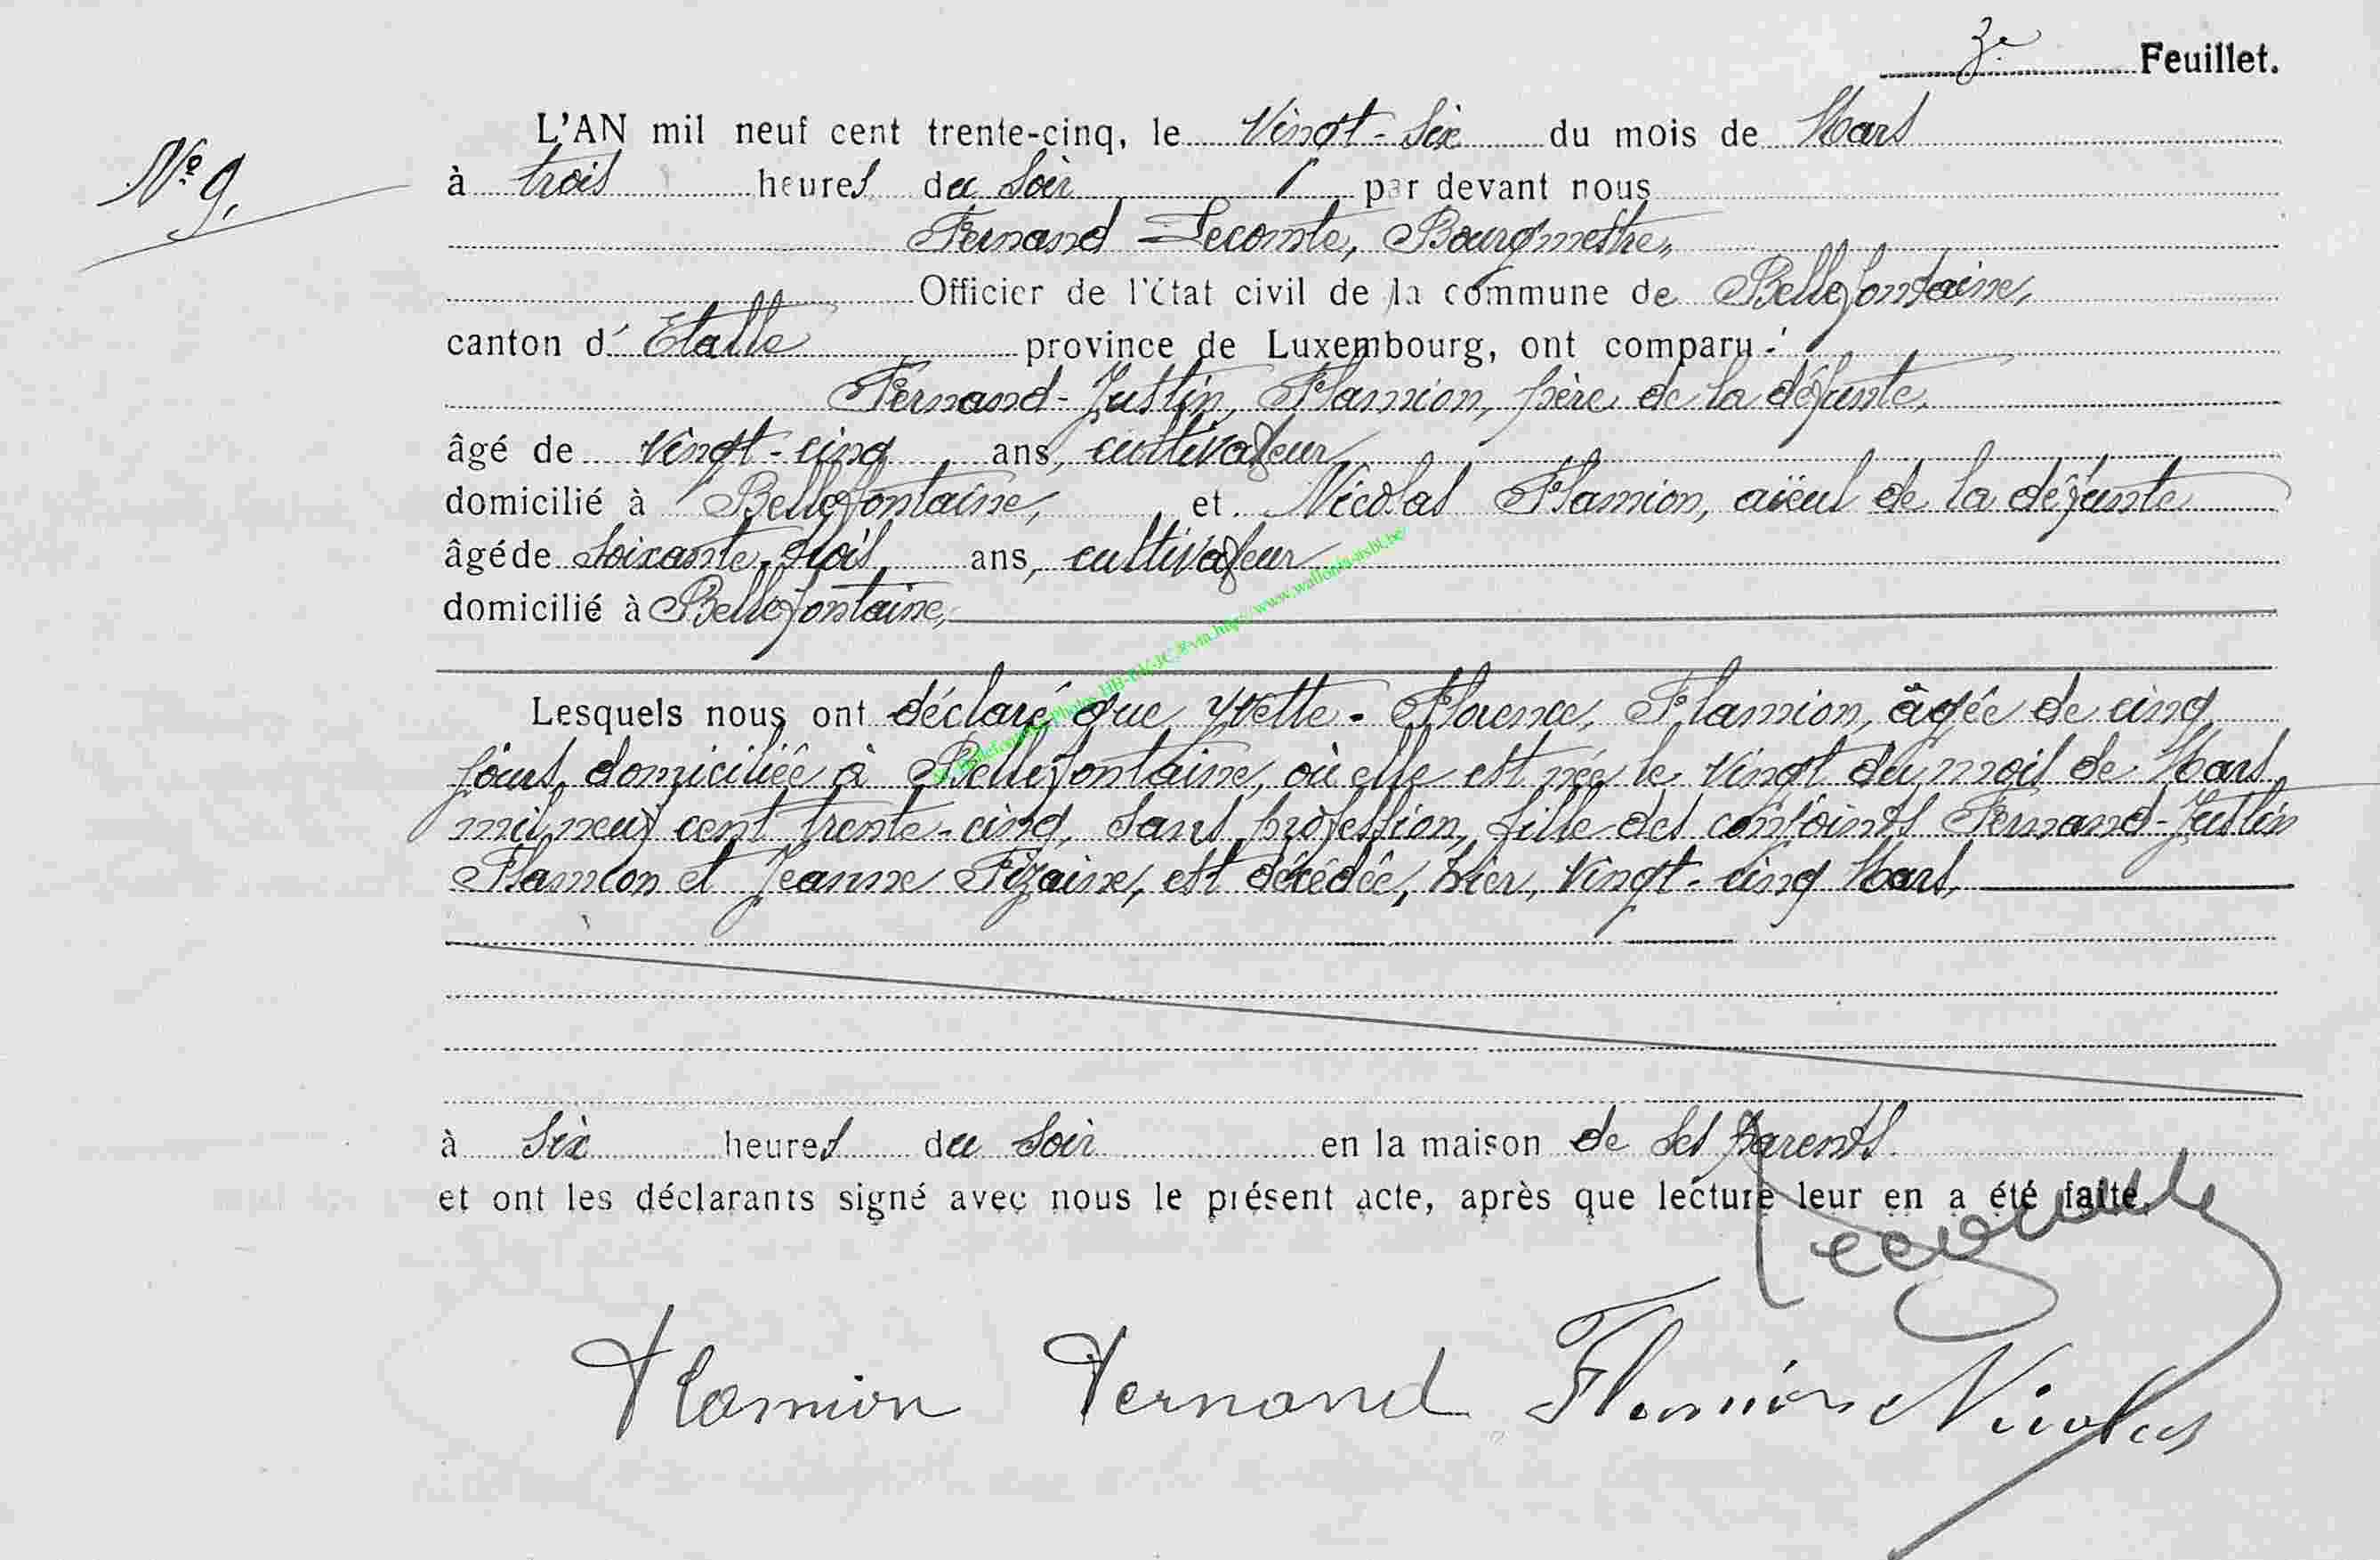 3e Feuillet.
N° 9.
L'AN mil neuf cent trente-cinq, le Vingt-Six du mois de Mars
à trois heures du Soir par devant nous
Fernand Lecomte, Bourgmestre,
Officier de l'état civil de la commune de Bellefontaine,
canton d' Etalle province de Luxembourg, ont comparu :
Fernand-Justin, Flamion, père de la défunte,
âgé de Vingt-cinq ans, cultivateur
domicilié à Bellefontaine, et Nicolas Flamion, aïeul de la défunte
âgé de Soixante-trois ans, cultivateur
domicilié à Bellefontaine,
Lesquels nous ont déclaré que Yvette-Florence, Flamion, âgée de cinq
jours, domiciliée à Bellefontaine, où elle est née le vingt du mois de Mars
mil neuf cent trente-cinq, sans profession, fille des conjoints Fernand-Justin
Flamion et Jeanne Fizaine, est décédée, hier, Vingt-cinq Mars,
à Six heures du Soir en la maison de ses parents.
et ont les déclarants signé avec nous le présent acte, après que lecture leur en a été faite.
Lecomte
Flamion Fernand Flamion Nicolas
via http://www.wallonia-asbl.be/